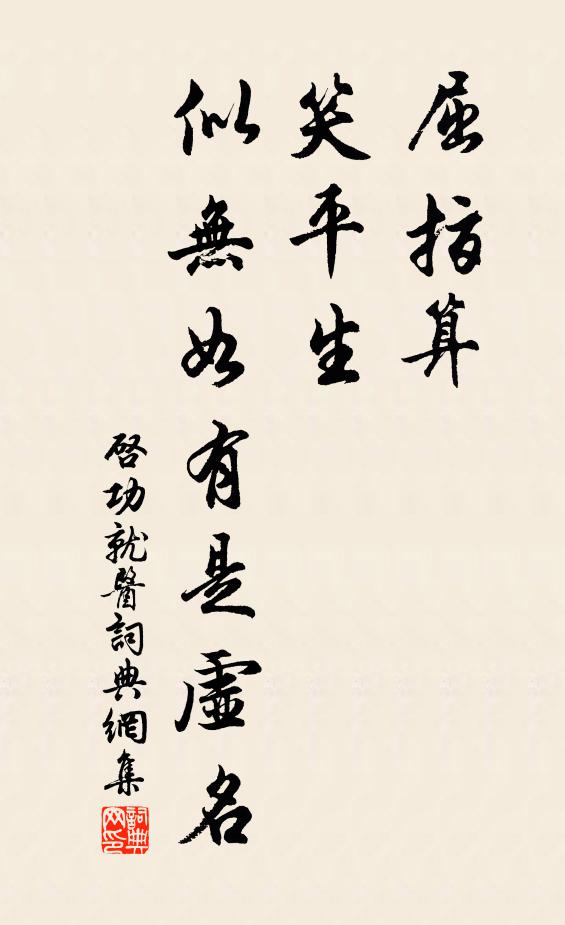 屈指算
笑平生
似無如有是虛名
啓功就醫詞典網集
詞典網印